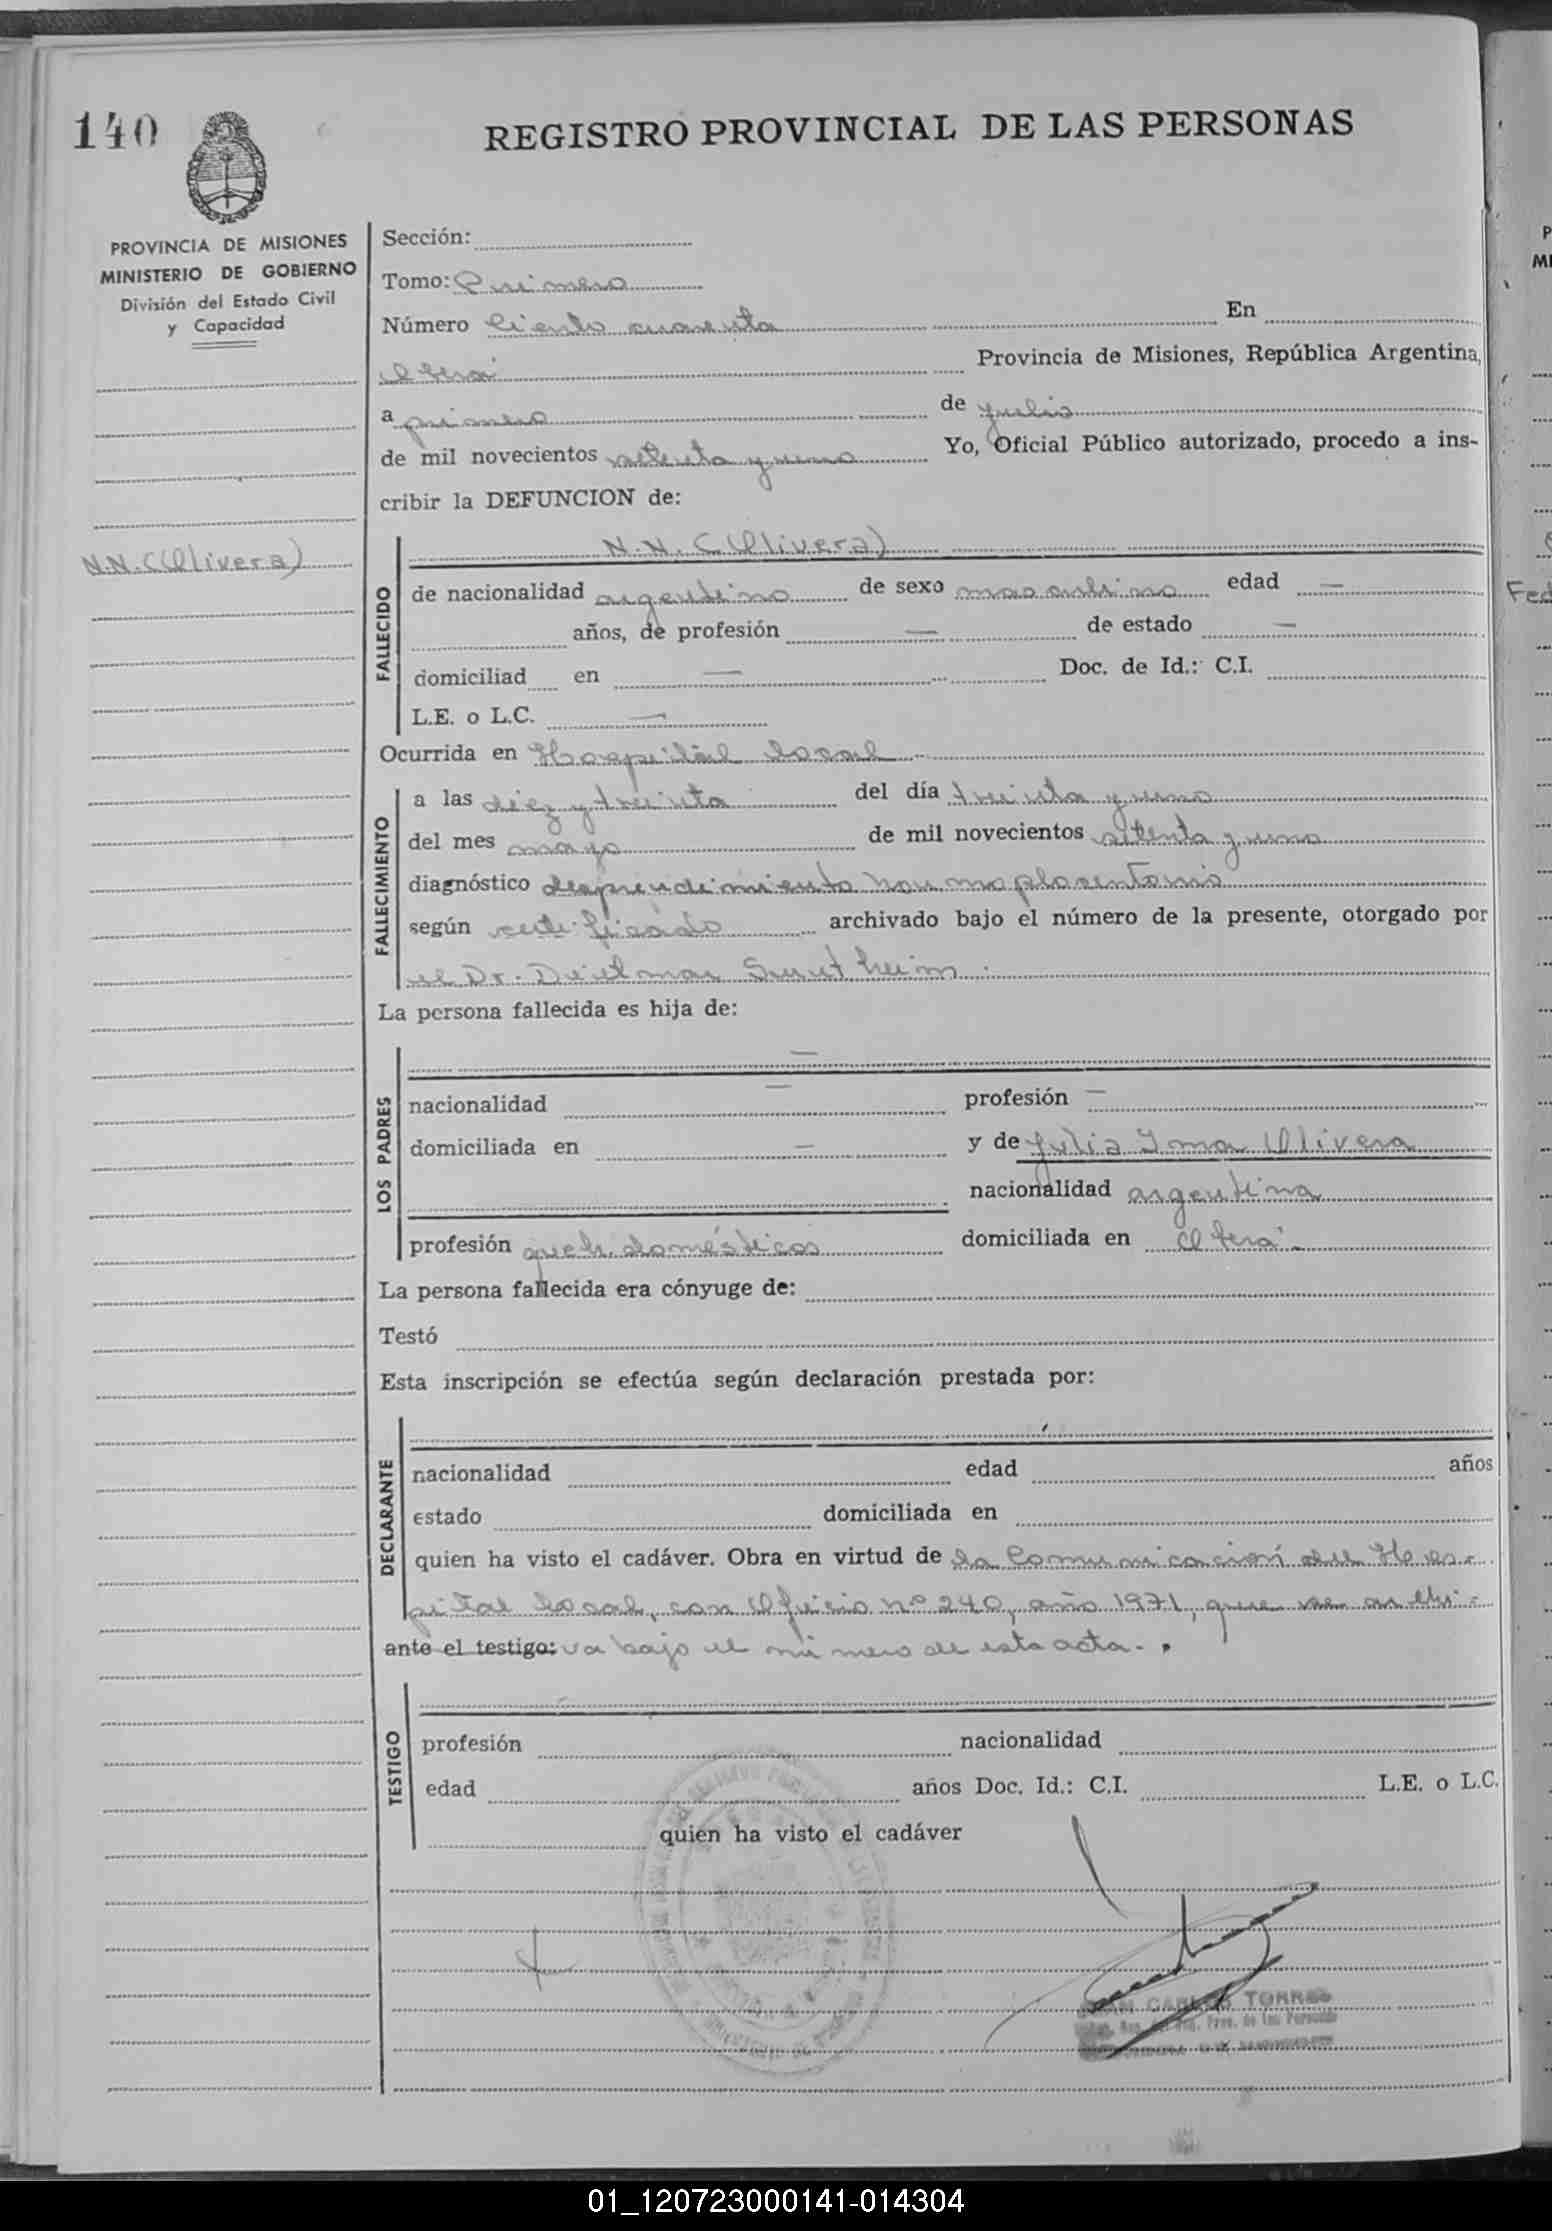 140
REGISTRO PROVINCIAL DE LAS PERSONAS
PROVINCIA DE MISIONES
MINISTERIO DE GOBIERNO
División del Estado Civil
y Capacidad
N.N. (Olivera)
Sección:
Tomo: Primero
Número Ciento cuarenta En
Oberá Provincia de Misiones, República Argentina,
a primero de julio
de mil novecientos setenta y uno Yo, Oficial Público autorizado, procedo a ins-
cribir la DEFUNCION de:
FALLECIDO
N.N. (Olivera)
de nacionalidad argentino de sexo masculino edad —
años, de profesión — de estado —
domiciliad en — Doc. de Id.: C.I.
L.E. o L.C. —
Ocurrida en Hospital local
FALLECIMIENTO
a las diez y treinta del día treinta y uno
del mes mayo de mil novecientos setenta y uno
diagnóstico desprendimiento
según certificado archivado bajo el número de la presente, otorgado por
el Dr. Dietmar
La persona fallecida es hija de:
LOS PADRES
—
nacionalidad — profesión —
domiciliada en — y de Julia Irma Olivera
nacionalidad argentina
profesión queh. domésticos domiciliada en Oberá.
La persona fallecida era cónyuge de:
Testó
Esta inscripción se efectúa según declaración prestada por:
DECLARANTE
nacionalidad edad años
estado domiciliada en
quien ha visto el cadáver. Obra en virtud de la Comunicación del Hos-
pital local, con Oficio nº 240, año 1971, que se archi-
ante el testigo: va bajo el número de esta acta.
TESTIGO
profesión nacionalidad
edad años Doc. Id.: C.I. L.E. o L.C.
quien ha visto el cadáver
JUAN CARLOS TORRES
Prov. de las Personas
01_120723000141-014304